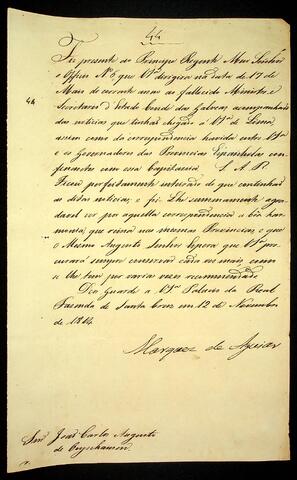 44
Fiz presente ao Principe Regente Meu Senhor
o Officio Nº 8 que Vª dirigira na data de 17 de
Maio do corrente anno ao fallecido Ministro e
Secretario d'Estado Conde das Galveas, acompanhado
das noticias que tinhas chegado a Vª de Lima,
assim como da correspondencia havida entre Vª
e os Governadores das Provincias Espanholas con-
finantes com essa Capitania. S. A. R.
Ficou perfeitamente inteirado do que continhaõ
as ditas noticias, e foi-Lhe summamente agra-
davel ver por aquella correspondencia a boa har-
monia, que reina nas mesmas Provincias, e que
o Mesmo Augusto Senhor Espera que Vª pro-
curará sempre conservar cada vez mais, como
se lhe tem por varias vezes recommendado.
Deos Guarde a Vª Palacio da Real
Fazenda de Santa Cruz em 12 de Novembro
de 1814.
Marquez de Aguiar
Snr. João Carlos Augusto
de Oeynhausen.